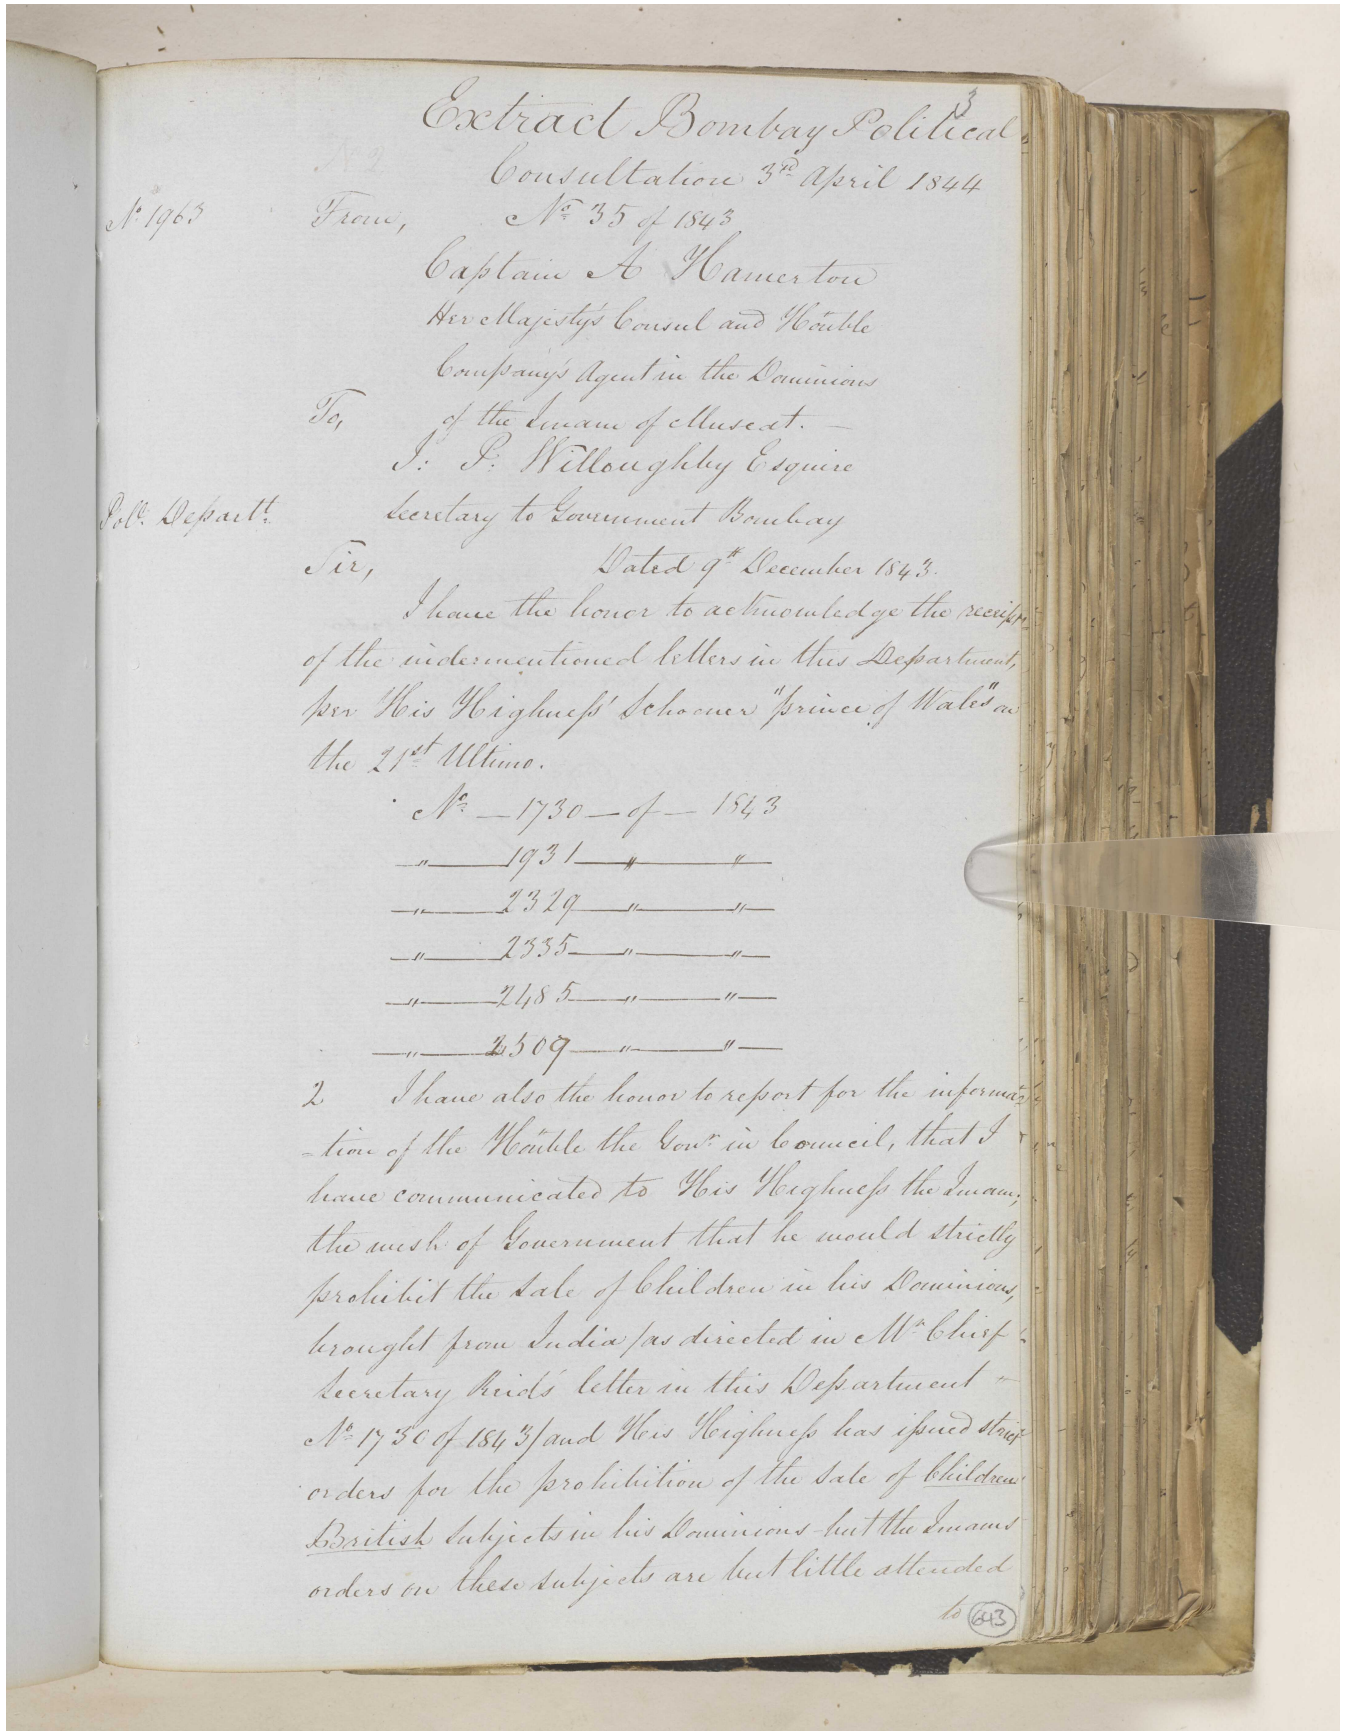 3
Extract Bombay Political
Consultation 3rd April 1844
No. 1963
From, No. 35 of 1843
Captain A Hamerton
Her Majesty's Consul and Honble
Company's Agent in the Dominions
To, of the Imam of Muscat. —
J: P: Willoughby Esquire
Pol: Departt. Secretary to Government Bombay
Sir, Dated 9th December 1843.
I have the honor to acknowledge the receipt
of the undermentioned letters in this Department,
per His Highness' Schooner "prince of Wales" on
the 21st Ultimo.
No. — 1730 — of — 1843
— " — 1931 — " — " —
— " — 2329 — " — " —
— " — 2335 — " — " —
— " — 2485 — " — " —
— " — 2509 — " — " —
2 I have also the honor to report for the informa
=tion of the Honble the Govr. in Council, that I
have communicated to His Highness the Imam;
the wish of Government that he would strictly
prohibit the sale of Children in his Dominions,
brought from India /as directed in Mr. Chief
Secretary Reid's letter in this Department
No. 1730 of 1843/ and His Highness has issued strict
orders for the prohibition of the sale of Children
British subjects in his Dominions - but the Imams
orders on these subjects are but little attended
to
643